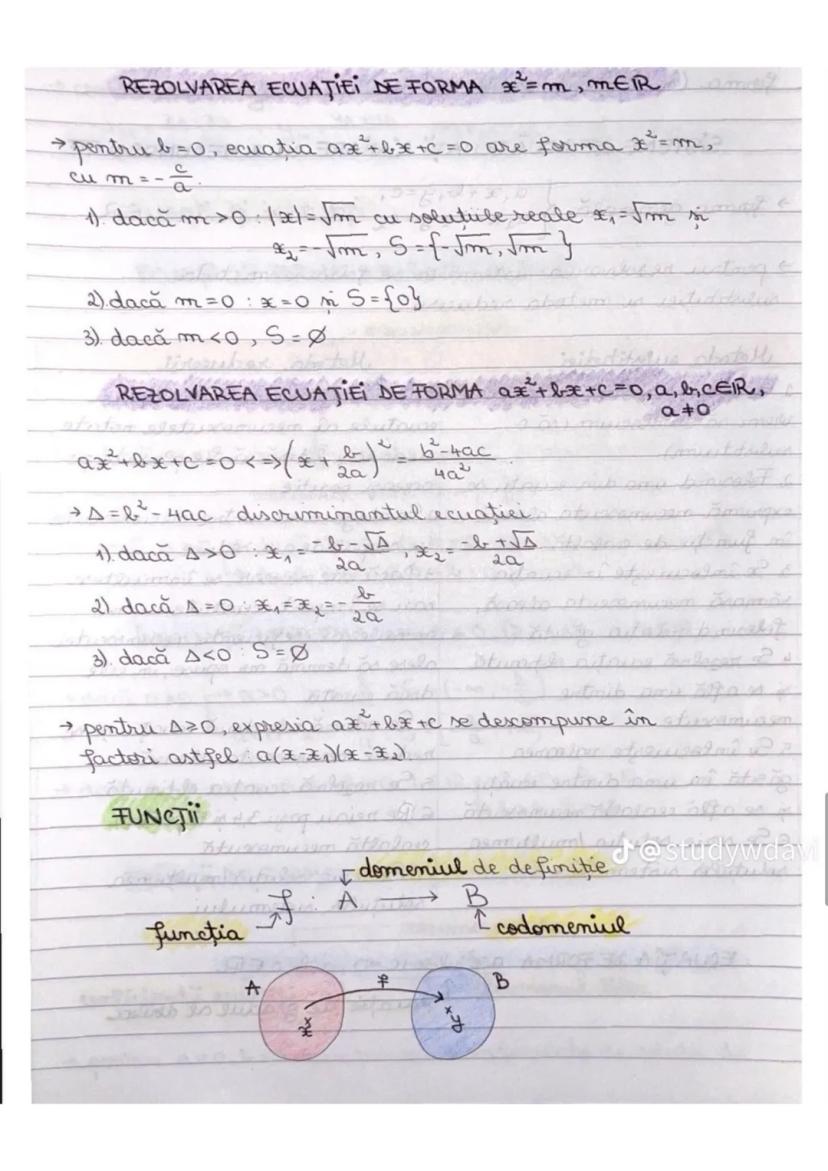 REZOLVAREA ECUAȚIEI DE FORMA x²=m, m∈ℝ
→ pentru b=0, ecuația ax²+bx+c=0 are forma x²=m,
cu m = -c/a.
1). dacă m>0 : |x|=√m cu soluțiile reale x₁=√m și
x₂=-√m, S={-√m, √m}
2). dacă m=0 : x=0 și S={0}
3). dacă m<0, S=∅
REZOLVAREA ECUAȚIEI DE FORMA ax²+bx+c=0, a,b,c∈ℝ,
a≠0
ax²+bx+c=0 <=> (x + b/2a)² = b²-4ac/4a²
→ Δ=b²-4ac discriminantul ecuației
1). dacă Δ>0 : x₁= -b-√Δ/2a, x₂= -b+√Δ/2a
2). dacă Δ=0 : x₁=x₂=-b/2a
3). dacă Δ<0 : S=∅
→ pentru Δ≥0, expresia ax²+bx+c se descompune în
factori astfel : a(x-x₁)(x-x₂)
FUNCȚII
@studywdavi
domeniul de definiție
f : A → B
funcția codomeniul
A f B
x y